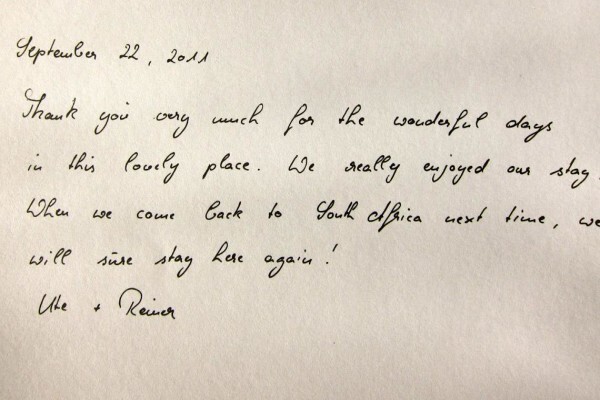 September 22, 2011
Thank you very much for the wonderful days
in this lovely place. We really enjoyed our stay.
When we come back to South Africa next time, we
will sure stay here again!
Ute + Reiner